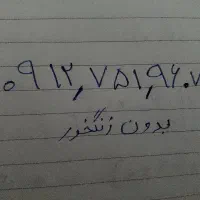 ۰۹۱۲,۷۵۱,۹۶۰۷
بدون زنگخور